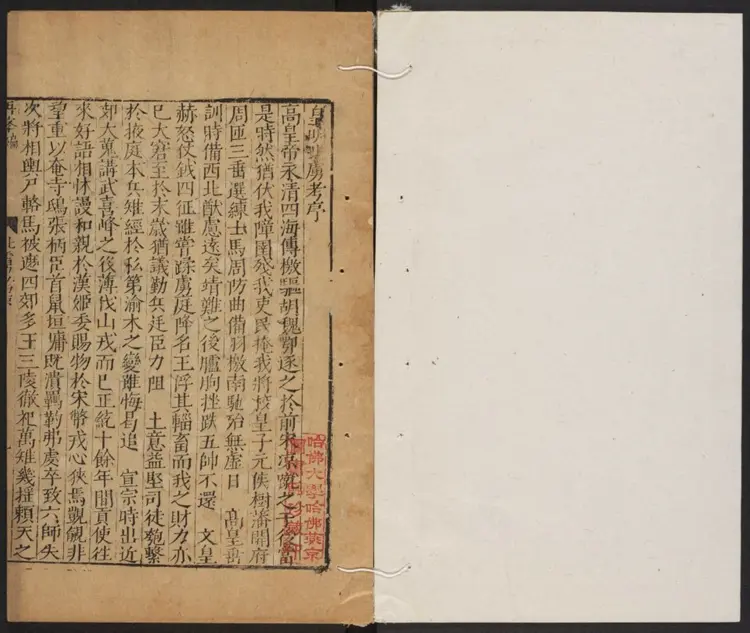 皇明北虜考序
高皇帝永清四海傳檄驅胡魏鄂逐之於前宋涼蹴之于後當
是時然猶伏我障圉殘我吏民掩我將校皇子元侯樹藩開府
周匝三垂選練士馬周防曲備羽檄南馳殆無虛日 高皇垂
訓時備西北猷慮遠矣靖難之後臚朐挫跌五帥不還 文皇
赫怒仗鉞四征雖嘗蹂虜庭降名王俘其輜畜而我之財力亦
已大窘至於末歲猶議勤兵廷臣力阻 上意益堅司徒匏繫
於掖庭本兵雉經於私第渝木之變雖悔曷追 宣宗時出近
郊大蒐講武喜峰之後薄伐山戎而已正統十餘年間貢使往
來好語相怵謾和親於漢姬委賜物於宋幣戎心狹焉覬覦非
望重以奄寺鴟張柄臣首鼠垣墉既潰羈勒弗虔卒致六師失
次將相輿尸輅馬被遮四郊多王三陵徹祀萬雉幾摇賴天之
哈佛大學哈佛燕京
圖書館珍藏印